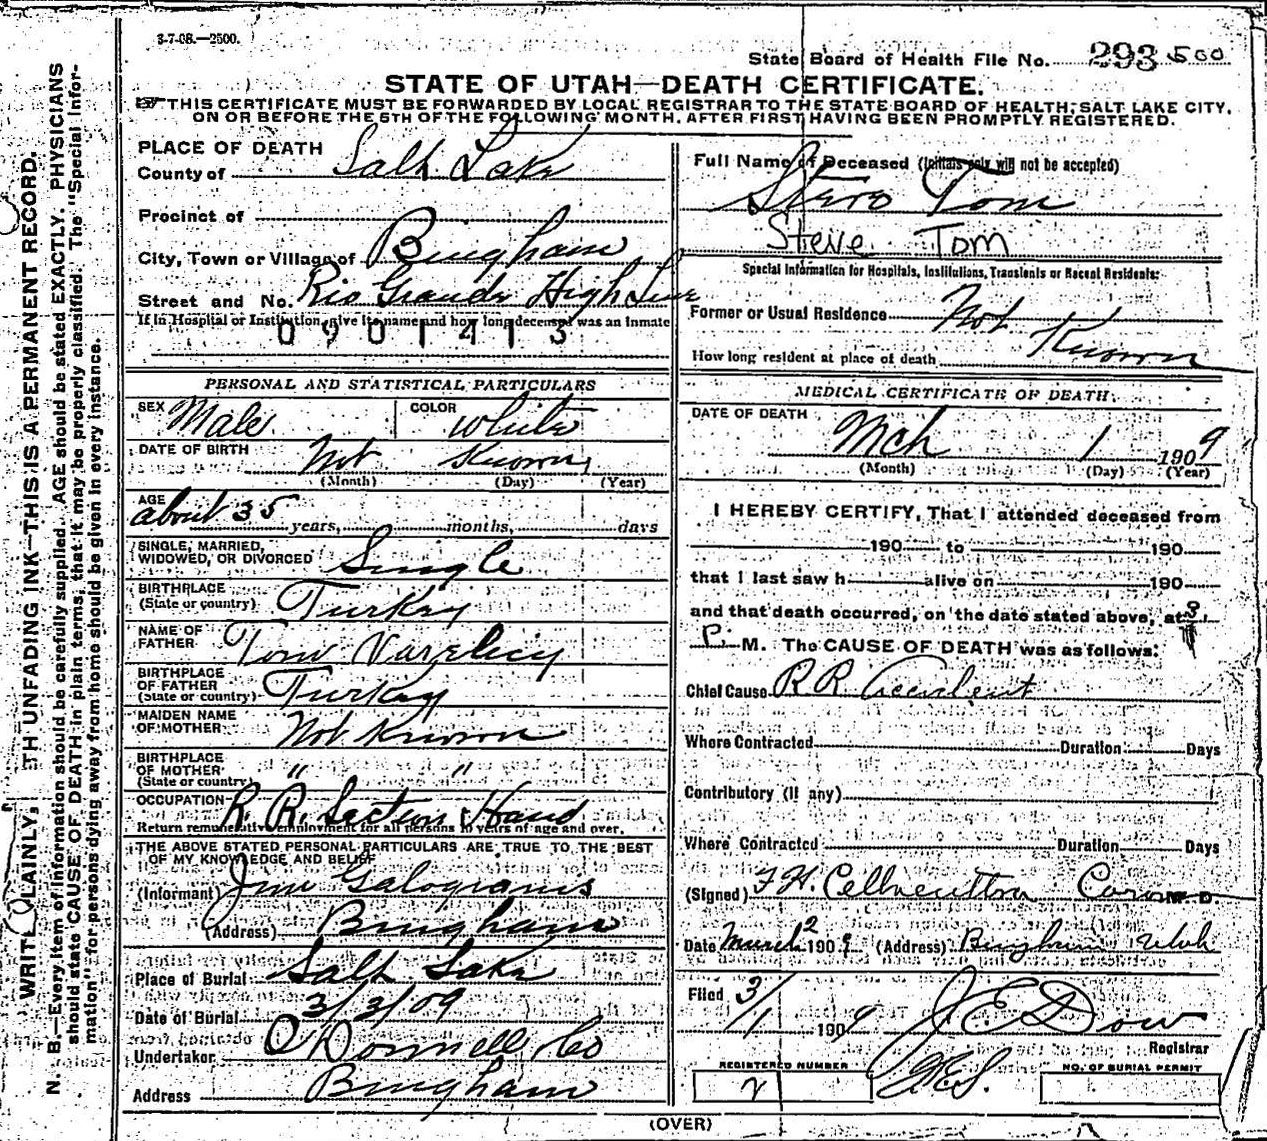 3-7-08.—2500.
State Board of Health File No. 293 500
STATE OF UTAH—DEATH CERTIFICATE.
THIS CERTIFICATE MUST BE FORWARDED BY LOCAL REGISTRAR TO THE STATE BOARD OF HEALTH, SALT LAKE CITY,
ON OR BEFORE THE 5TH OF THE FOLLOWING MONTH, AFTER FIRST HAVING BEEN PROMPTLY REGISTERED.
WRITE PLAINLY, WITH UNFADING INK—THIS IS A PERMANENT RECORD.
N. B.—Every item of information should be carefully supplied. AGE should be stated EXACTLY. PHYSICIANS
should state CAUSE OF DEATH in plain terms, that it may be properly classified. The "Special Infor-
mation" for persons dying away from home should be given in every instance.
PLACE OF DEATH
County of Salt Lake
Precinct of
City, Town or Village of Bingham
Street and No. Rio Grande High Line
If in Hospital or Institution, give its name and how long deceased was an inmate
0901413
PERSONAL AND STATISTICAL PARTICULARS
SEX Male COLOR White
DATE OF BIRTH Not Known
(Month) (Day) (Year)
AGE about 35 years, months, days
SINGLE, MARRIED,
WIDOWED, OR DIVORCED Single
BIRTHPLACE
(State or country) Turkey
NAME OF
FATHER Tom
BIRTHPLACE
OF FATHER
(State or country) Turkey
MAIDEN NAME
OF MOTHER Not Known
BIRTHPLACE
OF MOTHER
(State or country) " "
OCCUPATION R. R. Section Hand
Return remunerative employment for all persons 10 years of age and over.
THE ABOVE STATED PERSONAL PARTICULARS ARE TRUE TO THE BEST
OF MY KNOWLEDGE AND BELIEF
(Informant) Jim
(Address) Bingham
Place of Burial Salt Lake
Date of Burial 3/3/09
Undertaker O'Donnell Co
Address Bingham
Full Name of Deceased (Initials only will not be accepted)
Stero Tom
Steve Tom
Special Information for Hospitals, Institutions, Transients or Recent Residents:
Former or Usual Residence Not
Known
How long resident at place of death
MEDICAL CERTIFICATE OF DEATH.
DATE OF DEATH
Mch 1 1909
(Month) (Day) (Year)
I HEREBY CERTIFY, That I attended deceased from
190 to 190
that I last saw h alive on 190
and that death occurred, on the date stated above, at 3
P. M. The CAUSE OF DEATH was as follows:
Chief Cause R R Accident
Where Contracted Duration Days
Contributory (if any)
Where Contracted Duration Days
(Signed) F. H. M. D.
Date March 2 1909 (Address) Bingham Utah
Filed 3/1 1909 J. E. Dow
Registrar
REGISTERED NUMBER
NO. OF BURIAL PERMIT
(OVER)